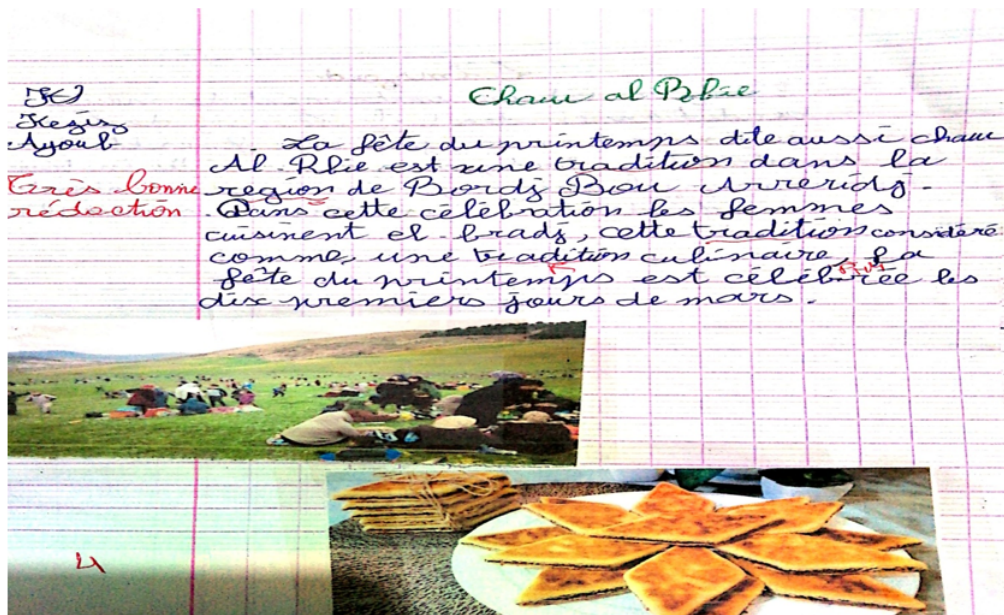 Chaw al Rbie
Ayoub
La fête du printemps dite aussi chaw
Al Rbie est une tradition dans la
Très bonne
région de Bordj Bou Arreridj.
rédaction
Dans cette célébration les femmes
cuisinent el bradj, cette tradition considéré
comme une tradition culinaire, La
fête du printemps est célébrée les
dix premiers jours de mars.
4